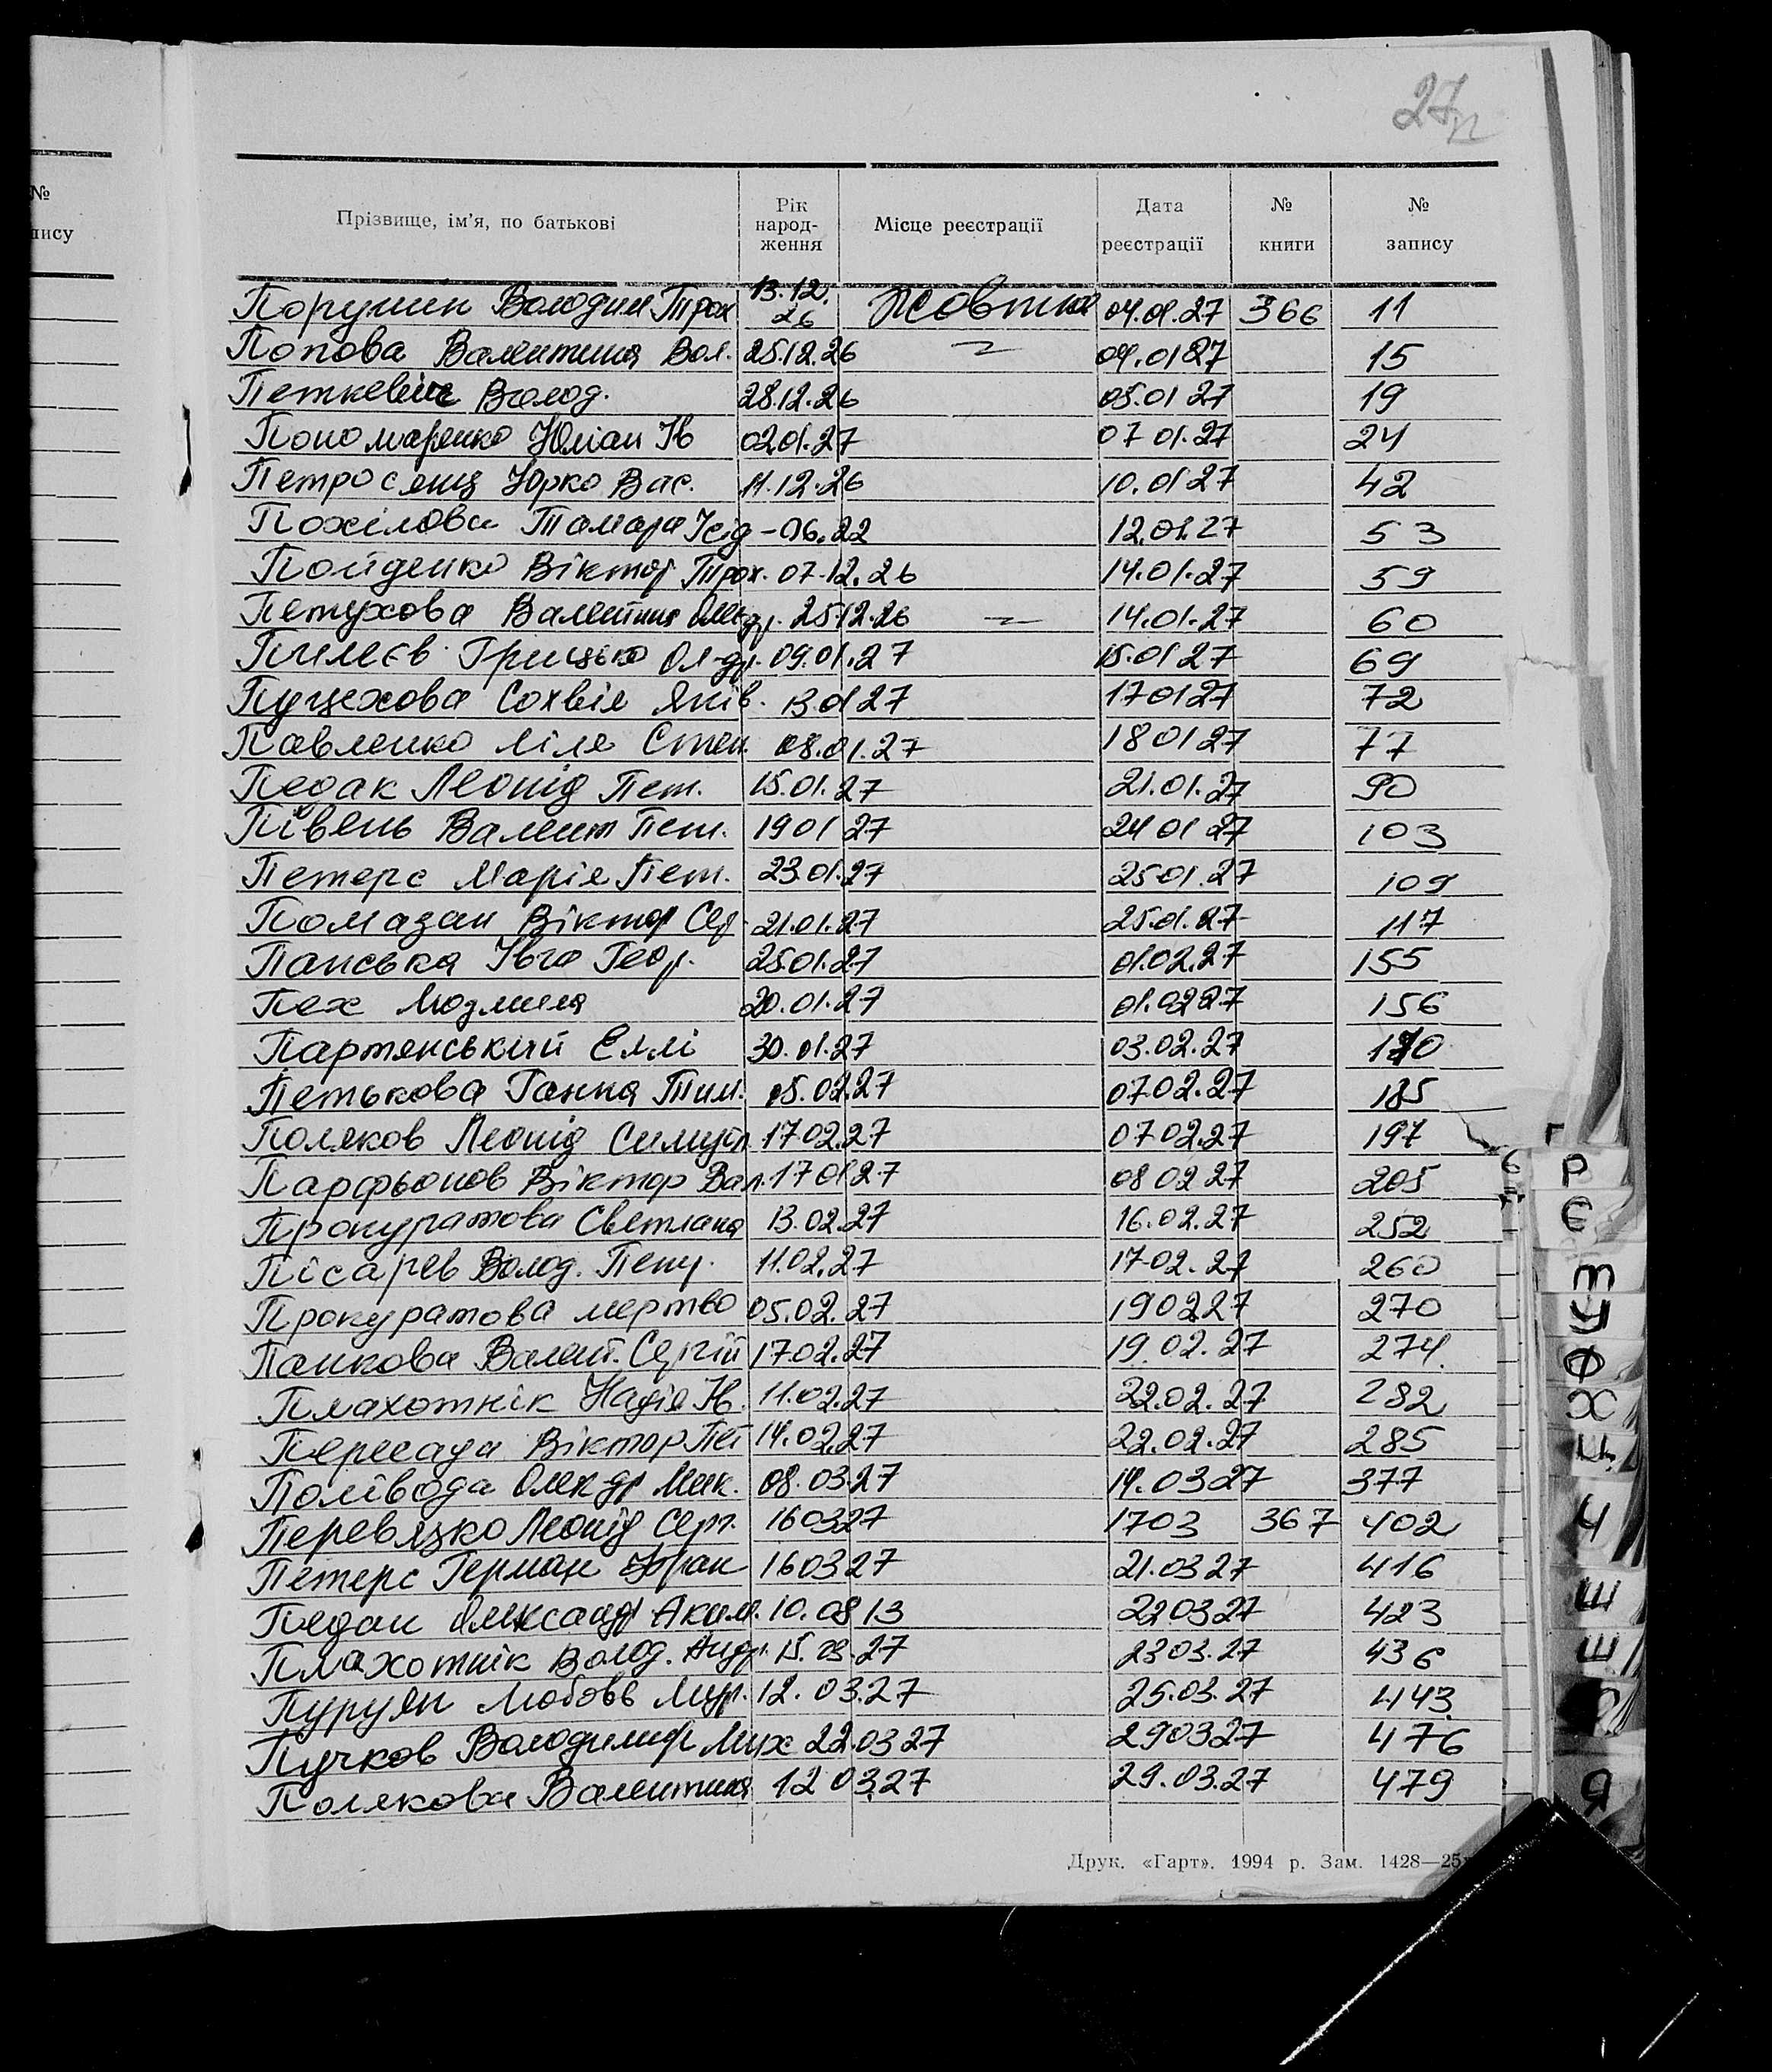 27 п
№
пису
Прізвище, ім'я, по батькові Рік народ-ження Місце реєстрації Дата реєстрації № книги № запису
Порушин Володим Трох 13.12.26 Жовтня 04.01.27 366 11
Попова Валентина Вол. 25.12.26 04.01 27 15
Петкевич Волод. 28.12.26 05.01 27 19
Пономаренко Юліан Ів 02.01.27 07 01.27 24
Петросянц Юрко Вас. 11.12.26 10.01 27 42
Похілова Тамара Ісід - 06.22 12.01.27 53
Пойденко Віктор Трох. 07.12.26 14.01.27 59
Петухова Валентина 25.12.26 14.01.27 60
Грицько Ол-др. 09.01.27 15.01 27 69
Пуцехова Сохвія Яків. 13.01 27 17 01 27 72
Павленко Ліля Степ. 08.01.27 18 01 27 77
Педак Леонід Пет. 15.01.27 21.01.27 90
Півень Валент Пет. 19 01 27 24 01 27 103
Петерс Марія Пет. 23.01.27 25 01.27 109
Помазан Віктор Сер. 21.01.27 25.01.27 117
Панська Івга Геор. 25.01.27 01.02.27 155
Пех Людмила 20.01.27 01.02 27 156
Партянський Еллі 30.01.27 03.02.27
Петькова Ганна Тим. 05.02.27 07.02.27 185
Поляков Леонід 17 02.27 07 02.27 197
Парфьонов Віктор Вал. 17 01 27 08 02 27 205
Прокуратова Светлана 13.02.27 16.02.27 252
Пісарев Волод. Петр. 11.02.27 17.02.27 260
Прокуратова мертво 05.02.27 19 02.27 270
Панкова Валент. Сергій 17.02.27 19.02.27 274
Плахотнік Надія Ів. 11.02.27 22.02.27 282
Пересада Віктор Пет 14.02.27 22.02.27 285
Полівода Олек-др Мик. 08.03 27 14.03 27 377
Перевязко Леонід Серг. 16 03 27 17 03 367 402
Петерс Герман Фран 16 03 27 21.03 27 416
Педан Олександр Аким. 10.08 13 22 03 27 423
Плахотнік Волод. Андр. 15.03.27 23 03.27 436
Пуруян Любовь 12.03.27 25.03.27 443
Пучков Володимир Мих 22.03 27 29 03 27 476
Полякова Валентина 12 03.27 29.03.27 479
Друк. «Гарт». 1994 р. Зам. 1428—25
Р
Є
Т
У
Ф
Х
Ц
Ч
Ш
Щ
Я